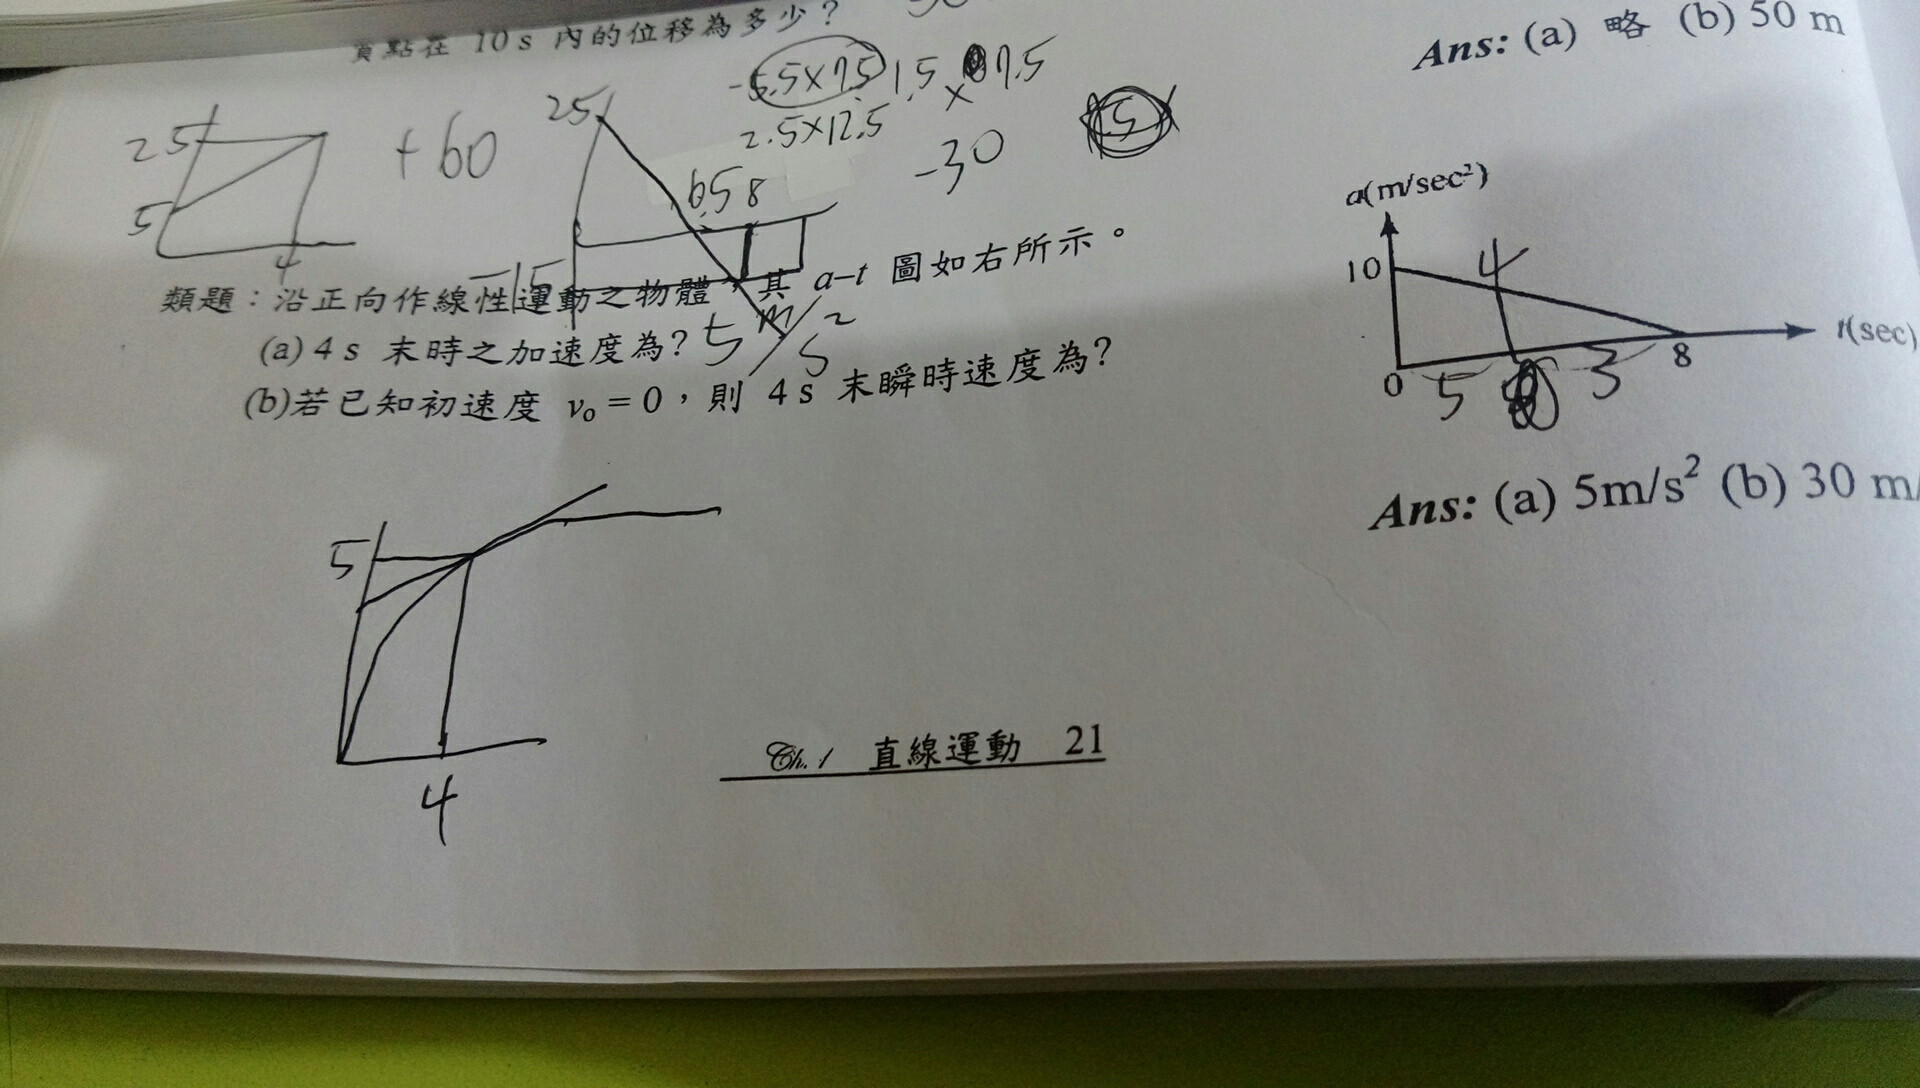 質點在 10 s 內的位移為多少？
Ans: (a) 略 (b) 50 m
-5.5×7.5 1.5 × 7.5
2.5×12.5
-30
5
25
5
4
+60
25
6.5 8
-15
類題：沿正向作線性運動之物體，其 a–t 圖如右所示。
(a) 4 s 末時之加速度為? 5 m/s2
(b)若已知初速度 v₀ = 0，則 4 s 末瞬時速度為?
a(m/sec²)
10
4
t(sec)
0 5 3 8
Ans: (a) 5m/s² (b) 30 m/
5
4
Ch. 1 直線運動 21